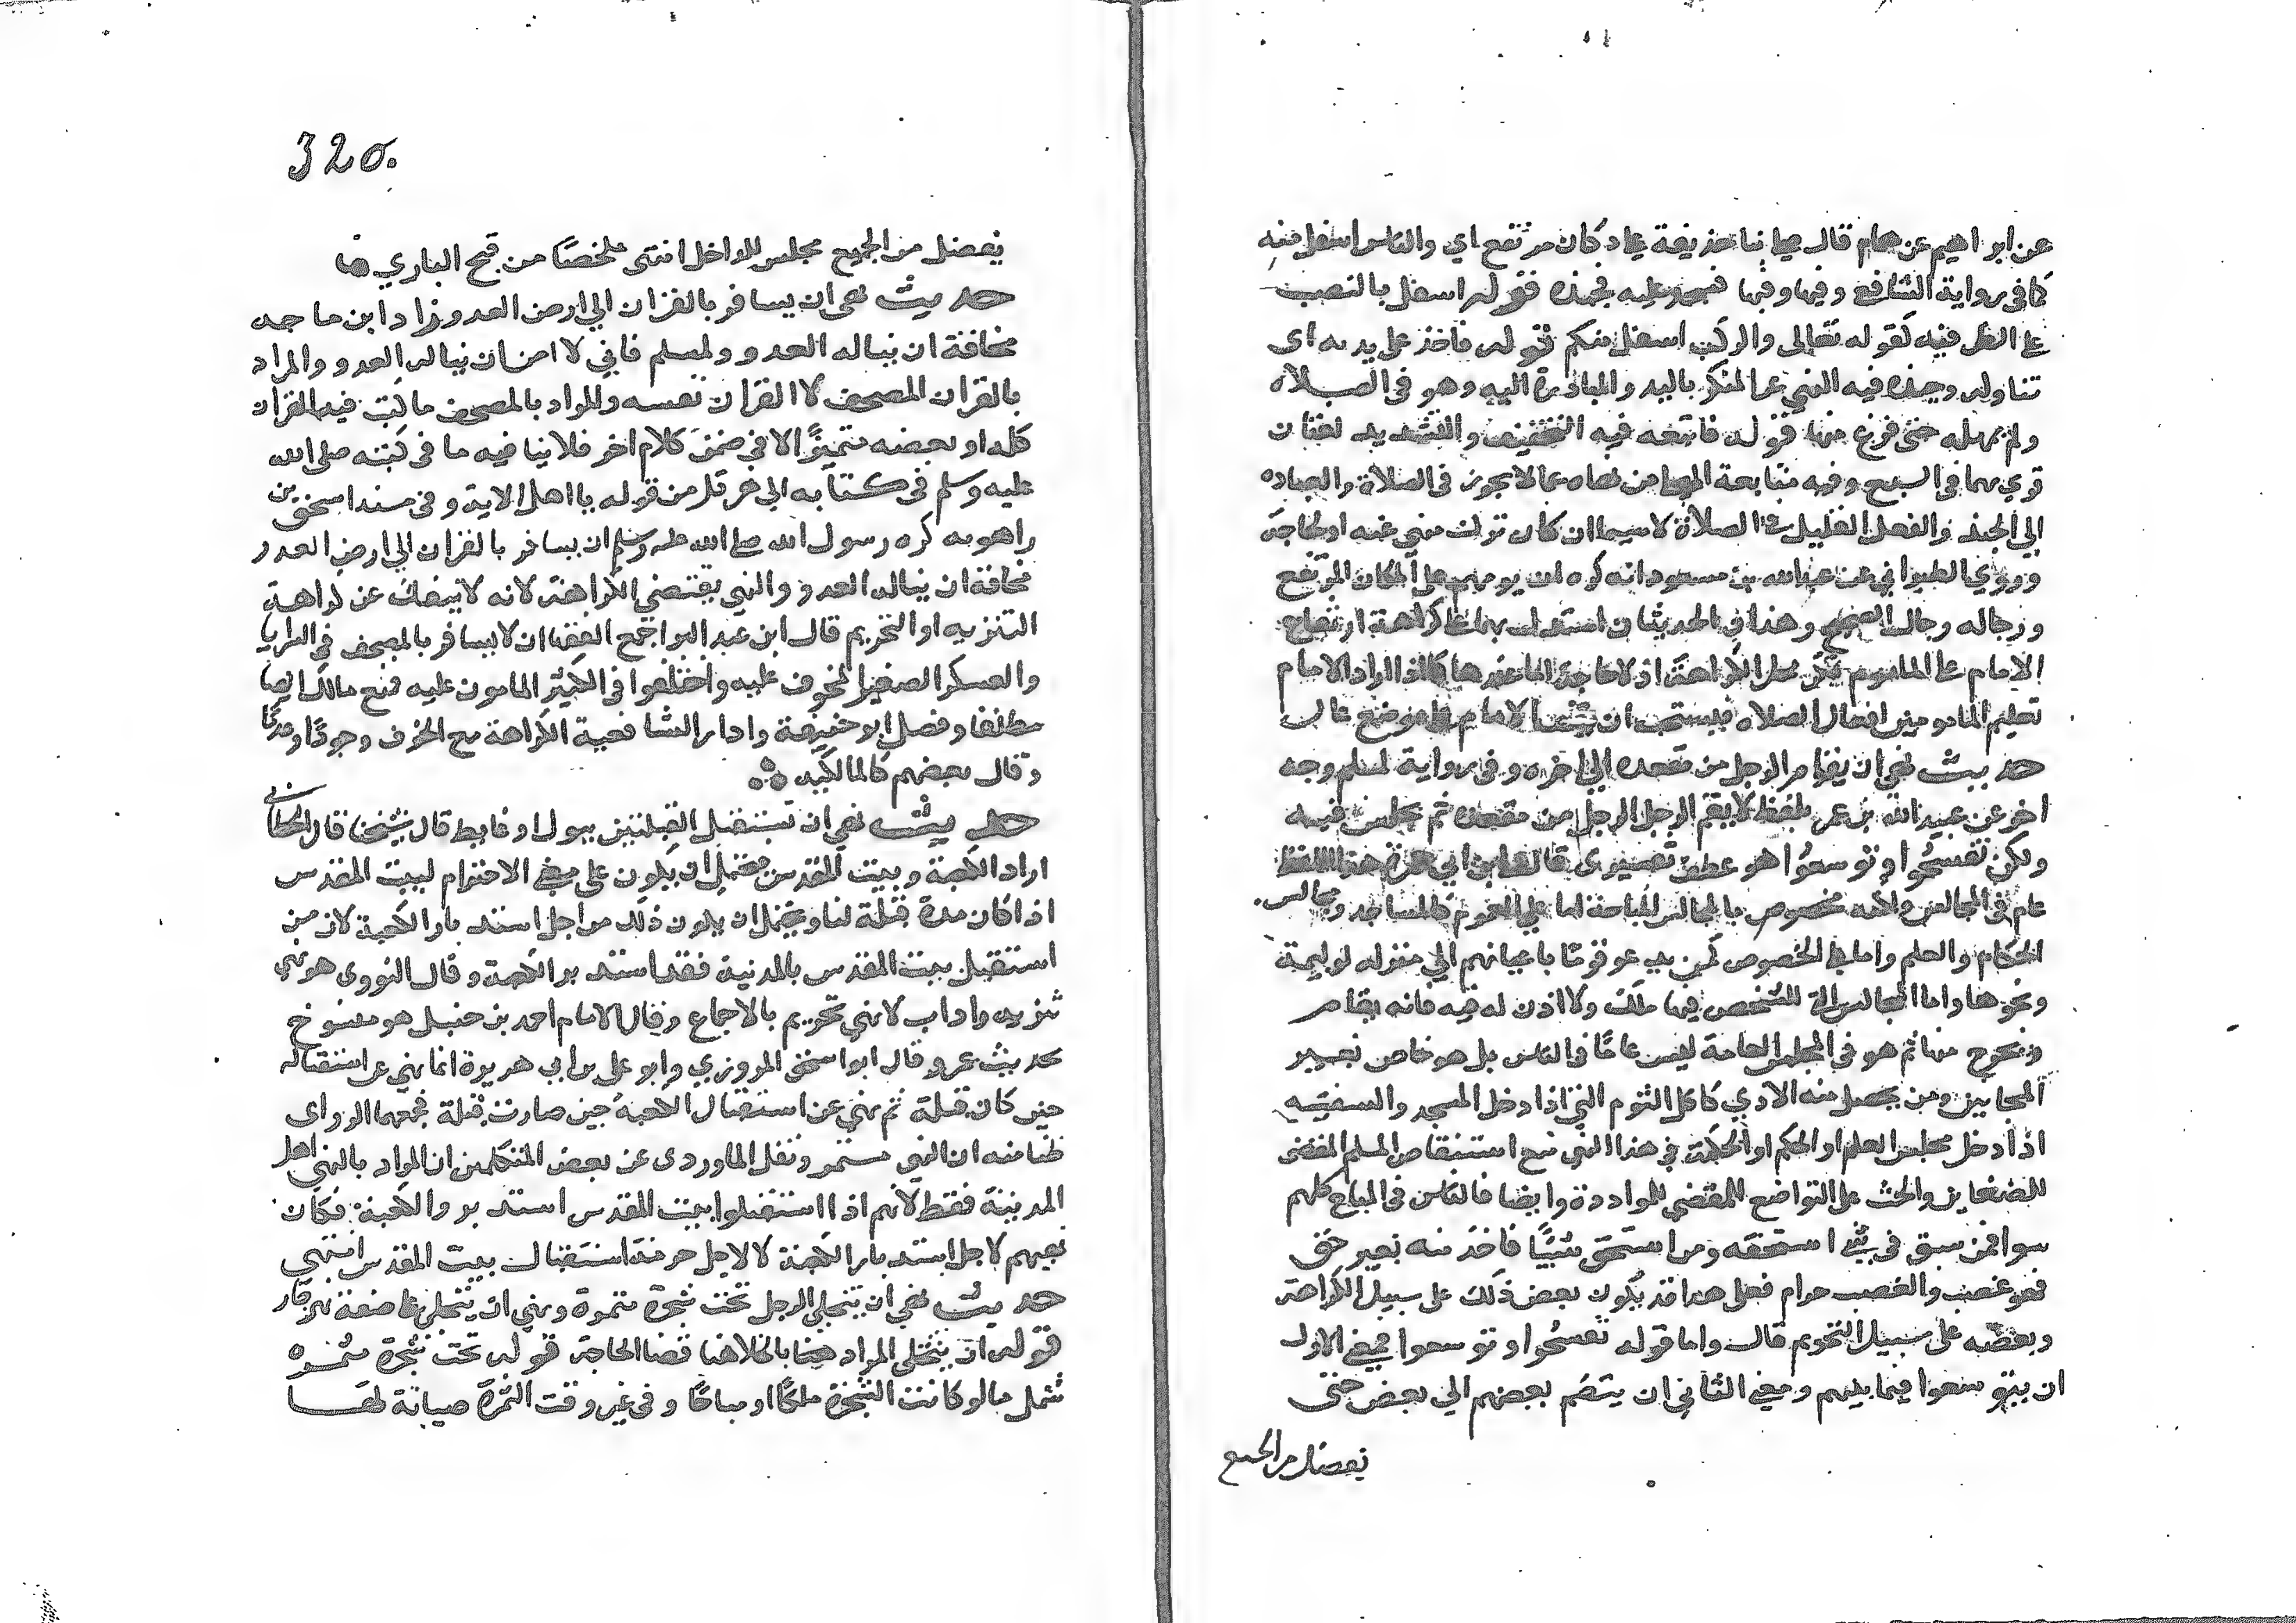 عن ابراهيم عن همام قال صلى بنا حذيفة على دكان مرتفع اي والناس اسفل منه
كما في رواية الشافعي وفيها فجبذه قوله اسفل بالنصب
على الظرفيه كقوله تعالى والركب اسفل منكم قوله فاخذ على يديه اى
تناوله وجبذه فيه النهي عن المنكر باليد والمبادرة اليه وهو في الصلاة
ولم يمهله حتى فرغ منها قوله فاتبعه فيه التخفيف والتشديد لغتان
قري بهما في السبع وفيه متابعة من نهاه عما لا يجوز في الصلاة
الي الجبذ والفعل القليل في الصلاة لا سيما ان كان ترك منهي عنه او لحاجة
وروي الطبراني عن عبدالله بن مسعود انه كره ان يومهم على المكان المرتفع
ورجاله رجال الصحيح وهذان الحديثان استدل بهما على كراهة ارتفاع
الامام على الماموم محل الكراهة اذ لا حاجة اما عندها كما اذا اراد الامام
تعليم المامومين افعال الصلاه فيستحب ان الامام على موضع عال
حديث نهي ان يقام الرجل من مقعده الي اخره وفي رواية لمسلم وجه
اخر عن عبيد الله بن عمر بلفظ لا يقم الرجل الرجل من مقعده ثم يجلس فيه
ولكن تفسحوا وتوسعوا هو عطف تفسيري قال ابن ابي جمرة هذا اللفظ
عام في المجالس ولكنه مخصوص بالمجالس المباحة اما على العموم كالمساجد ومجالس
الحكام والعلم واما على الخصوص كمن يدعو قوما باعيانهم الي منزله لوليمة
ونحوها واما المجالس التي للشخص فيها ملك ولا اذن له فيه فانه يقام
ويخرج منها ثم هو في المجالس العامة ليس عاما في الناس بل هو خاص بغير
المجانين ومن يحصل منه الاذي كاكل الثوم الني اذا دخل المسجد والسفيه
اذا دخل مجلس العلم او الحكم والحكمة في هذا النهي منع استنقاص المسلم المقتضى
للضغاين والحث على التواضع المقتضي للمواددة وايضا فالناس في المباح كلهم
سوا فمن سبق في شي استحقه ومن استحق شيئا فاخذ منه بغير حق
فهو غصب والغصب حرام فعلى هذا قد يكون بعض ذلك على سبيل الكراهة
وبعضه على سبيل التحريم قال واما قوله تفسحوا وتوسعوا فمعنى الاول
ان يتوسعوا فيما بينهم ومعنى الثاني ان ينضم بعضهم الي بعض حتى
يفضل من الجميع
320.
يفضل من الجميع مجلس للداخل انتهى ملخصا من فتح الباري
حديث نهى ان يسافر بالقران الي ارض العدو زاد ابن ماجه
مخافة ان يناله العدو ولمسلم فاني لا امن ان يناله العدو والمراد
بالقران المصحف لا القران نفسه والمراد بالمصحف ما كتب فيه القران
كله او بعضه متميزا لا في ضمن كلام اخر فلا ينافيه ما في كتبه صلى الله
عليه وسلم في كتابه الي هرقل من قوله يا اهل الاية وفي مسند اسحق بن
راهويه كره رسول الله صلى الله عليه وسلم ان يسافر بالقران الي ارض العدو
مخافة ان يناله العدو والنهي يقتضي الكراهة لانه لا ينفك عن كراهة
التنزيه او التحريم قال ابن عبد البر اجمع الفقها ان لا يسافر بالمصحف في السرايا
والعسكر الصغير المخوف عليه واختلفوا في الكبير المامون عليه فمنع مالك ايضا
مطلقا وفصل ابو حنيفة وادار الشافعية الكراهة مع الخوف وجودا وعدما
وقال بعضهم كالمالكيه
حديث نهي ان تستقبل القبلتين ببول او غايط قال شيخنا قال الخطابي
اراد الكعبة وبيت المقدس فيحتمل ان يكون على معنى الاحترام لبيت المقدس
اذ كان مدة قبلة لنا ويحتمل ان يكون ذلك من اجل استدبار الكعبة لان من
استقبل بيت المقدس بالمدينة فقد استدبر الكعبة وقال النووى هو نهي
تنزيه واداب لا نهي تحريم بالاجماع وقال الامام احمد بن حنبل هو منسوخ
بحديث عمر وقال ابو اسحق المروزي وابو على بن ابي هريرة انما نهي عن استقباله
حين كان قبلة ثم نهي عن استقبال الكعبة حين صارت قبلة فجمعهما الرواى
ظنا منه ان النهي مستمر ونقل الماوردى عن بعض المتكلمين ان المراد بالنهي اهل
المدينة فقط لانهم اذا استقبلوا بيت المقدس استدبروا الكعبة فكان
نهيهم لاجل استدبار الكعبة لا لاجل حرمة استقبال بيت المقدس انتهى
حديث نهي ان يتخلى الرجل تحت شجرة مثمرة ونهي ان يتخلى على ضفة نهر جار
قوله ان يتخلى المراد هنا بالخلا هنا قضا الحاجة قوله تحت شجرة مثمره
شمل ما لو كانت الشجرة ملكا او مباحا وفي غير وقت الثمرة صيانة لها